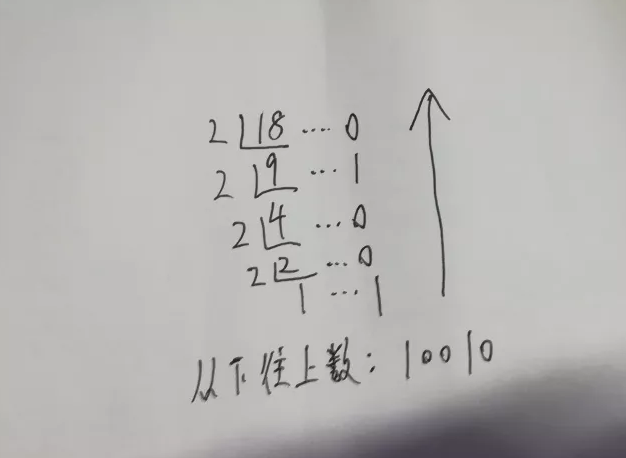 2 18 .... 0
2 9 ... 1
2 4 ... 0
2 2 ... 0
1 ... 1
从下往上数: 10010